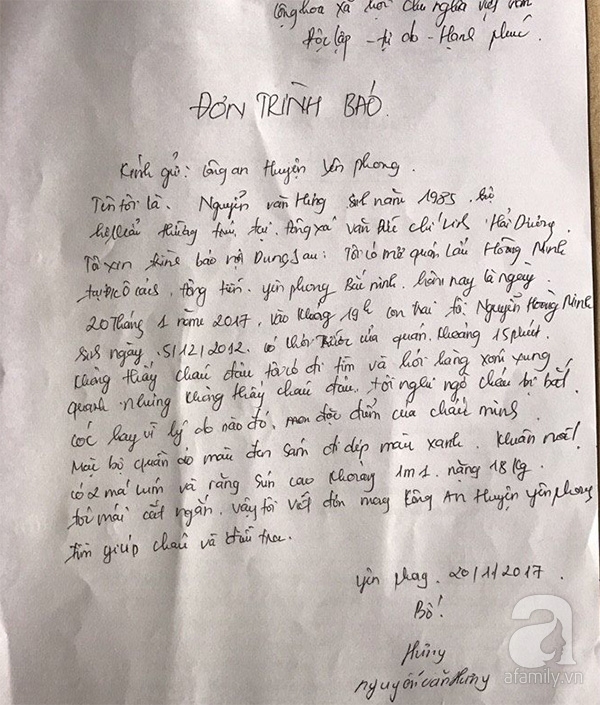 Cộng hòa xã hội chủ nghĩa việt nam
Độc lập - tự do - Hạnh phúc.
ĐƠN TRÌNH BÁO.
Kính gửi: Công an Huyện Yên phong.
Tên tôi là. Nguyễn văn Hưng sinh năm 1985. hộ
khẩu thường trú, tại. văn Đức chí Linh Hải Dương.
Tôi xin trình báo nội Dung Sau: Tôi có mở quán Lẩu Hoàng Minh
tại ô cách, Đông tiến. yên phong Bắc ninh. hôm nay là ngày.
20 tháng 1 năm 2017, vào khoảng 19h con trai tôi. Nguyễn Hoàng Minh
sinh ngày. 5/12/2012. có chơi trước cửa quán. khoảng 15 phút.
không thấy cháu đâu tôi có đi tìm và hỏi hàng xóm xung
quanh nhưng không thấy cháu đâu, tôi nghi ngờ cháu bị bắt
cóc hay vì lý do nào đó, đặc điểm của cháu mình
mặc bộ quần áo màu đen sám đi dép màu xanh. khuân mặt
có 2 má lúm và răng sún cao khoảng 1m1. nặng 18kg.
tóc mái cắt ngắn. vậy tôi viết đơn mong Công An Huyện yên phong
tìm giúp cháu và điều tra.
yên phong. 20/1/2017.
Bố!
Hưng
nguyễn văn Hưng
a
afamily.vn